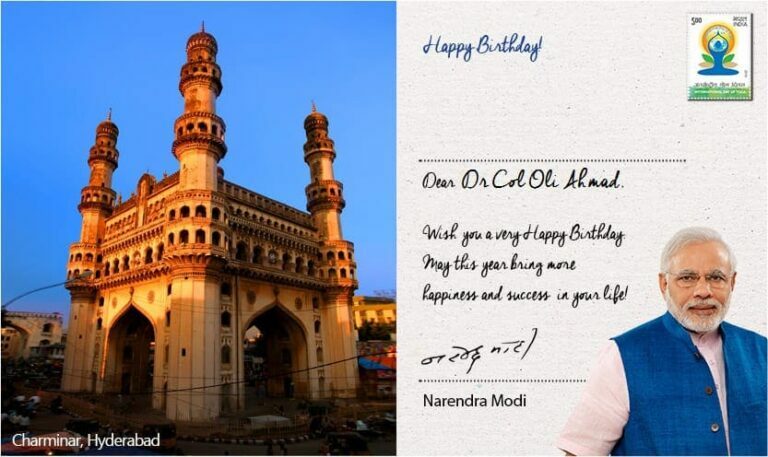 Happy Birthday!
5.00
INDIA
INTERNATIONAL DAY OF YOGA
Dear Dr Col Oli Ahmad.
Wish you a very Happy Birthday
May this year bring more
happiness and success in your life!
Narendra Modi
Charminar, Hyderabad